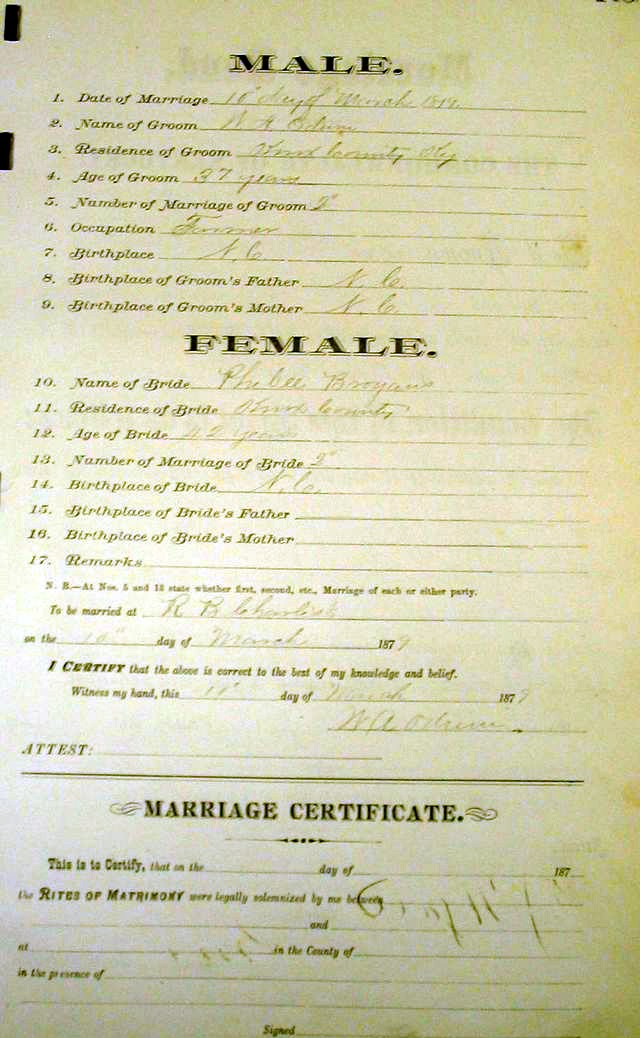 MALE.
1. Date of Marriage 10" day of March 1879
2. Name of Groom W A
3. Residence of Groom Knox County Ky
4. Age of Groom 37 years
5. Number of Marriage of Groom 2"
6. Occupation Farmer
7. Birthplace N. C.
8. Birthplace of Groom's Father N. C.
9. Birthplace of Groom's Mother N. C.
FEMALE.
10. Name of Bride
11. Residence of Bride Knox County
12. Age of Bride 42 years
13. Number of Marriage of Bride 2"
14. Birthplace of Bride N. C.
15. Birthplace of Bride's Father
16. Birthplace of Bride's Mother
17. Remarks
N. B.—At Nos. 5 and 13 state whether first, second, etc., Marriage of each or either party.
To be married at R B
on the 10" day of March 1879
I CERTIFY that the above is correct to the best of my knowledge and belief.
Witness my hand, this 10" day of March 1879
W A
ATTEST:
MARRIAGE CERTIFICATE.
This is to Certify, that on the day of 187
the RITES OF MATRIMONY were legally solemnized by me between
and
at in the County of
in the presence of
Signed